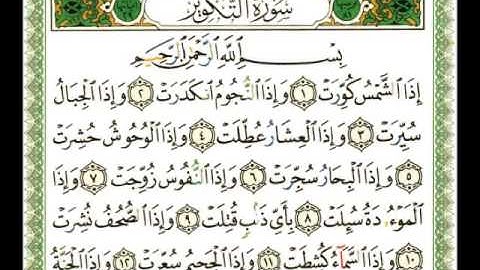 سُورَةُ التَّكْوِيرِ
بِسْمِ اللَّهِ الرَّحْمَٰنِ الرَّحِيمِ
إِذَا الشَّمْسُ كُوِّرَتْ ١ وَإِذَا النُّجُومُ انكَدَرَتْ ٢ وَإِذَا الْجِبَالُ
سُيِّرَتْ ٣ وَإِذَا الْعِشَارُ عُطِّلَتْ ٤ وَإِذَا الْوُحُوشُ حُشِرَتْ
٥ وَإِذَا الْبِحَارُ سُجِّرَتْ ٦ وَإِذَا النُّفُوسُ زُوِّجَتْ ٧ وَإِذَا
الْمَوْءُدَةُ سُئِلَتْ ٨ بِأَيِّ ذَنبٍ قُتِلَتْ ٩ وَإِذَا الصُّحُفُ نُشِرَتْ
١٠ وَإِذَا السَّمَاءُ كُشِطَتْ ١١ وَإِذَا الْجَحِيمُ سُعِّرَتْ ١٢ وَإِذَا الْجَنَّةُ